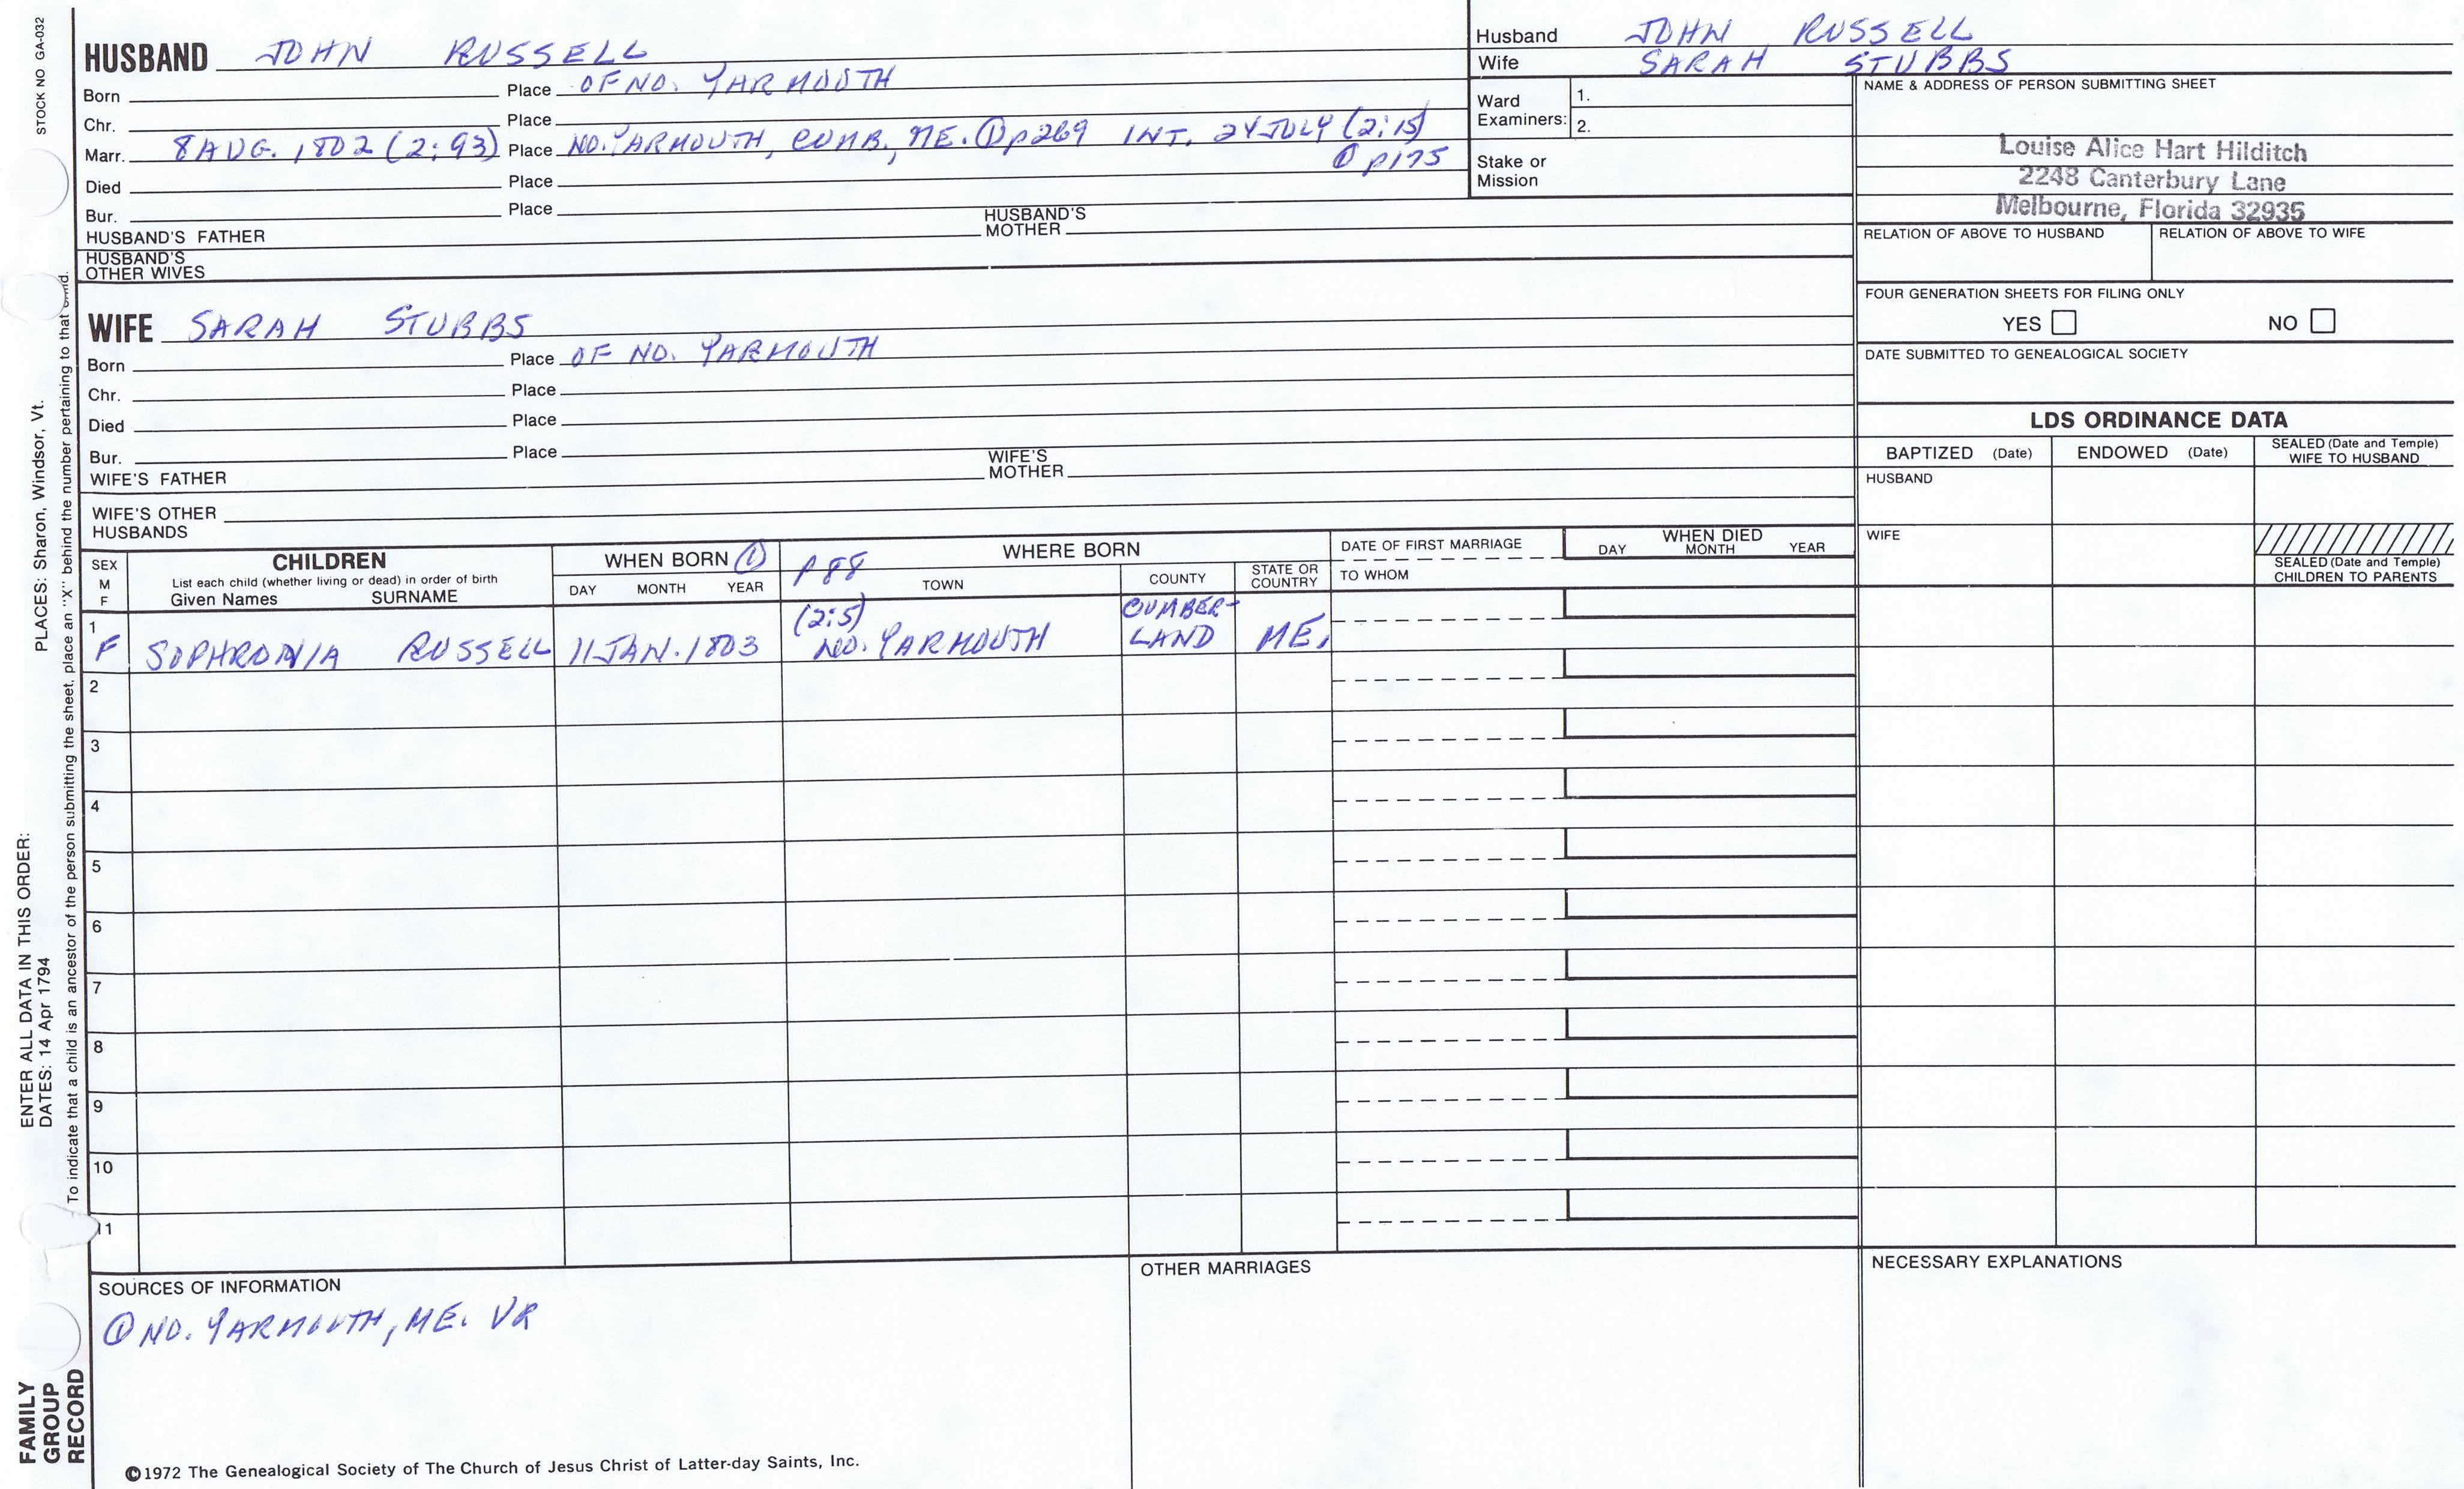 STOCK NO GA-032
HUSBAND JOHN RUSSELL
Born Place OF NO. YARMOUTH
Chr. Place
Marr. 8 AUG. 1802 (2:93) Place NO. YARMOUTH, CUMB., ME. ① p269 INT. 24 JULY (2:15)
① p175
Died Place
Bur. Place
HUSBAND'S FATHER HUSBAND'S MOTHER
HUSBAND'S OTHER WIVES
Husband JOHN RUSSELL
Wife SARAH STUBBS
Ward Examiners: 1.
2.
Stake or Mission
NAME & ADDRESS OF PERSON SUBMITTING SHEET
Louise Alice Hart Hilditch
2248 Canterbury Lane
Melbourne, Florida 32935
RELATION OF ABOVE TO HUSBAND RELATION OF ABOVE TO WIFE
FOUR GENERATION SHEETS FOR FILING ONLY
YES NO
DATE SUBMITTED TO GENEALOGICAL SOCIETY
WIFE SARAH STUBBS
Born Place OF NO. YARMOUTH
Chr. Place
Died Place
Bur. Place
WIFE'S FATHER WIFE'S MOTHER
WIFE'S OTHER HUSBANDS
LDS ORDINANCE DATA
BAPTIZED (Date) ENDOWED (Date) SEALED (Date and Temple) WIFE TO HUSBAND
HUSBAND
WIFE
SEALED (Date and Temple) CHILDREN TO PARENTS
SEX M F
CHILDREN
List each child (whether living or dead) in order of birth
Given Names SURNAME
WHEN BORN ①
DAY MONTH YEAR
P88 WHERE BORN
TOWN COUNTY STATE OR COUNTRY
DATE OF FIRST MARRIAGE
TO WHOM
WHEN DIED
DAY MONTH YEAR
1 F SOPHRONIA RUSSELL 11 JAN. 1803 (2:5) NO. YARMOUTH CUMBER-LAND ME.
2
3
4
5
6
7
8
9
10
11
SOURCES OF INFORMATION
① NO. YARMOUTH, ME. VR
OTHER MARRIAGES
NECESSARY EXPLANATIONS
©1972 The Genealogical Society of The Church of Jesus Christ of Latter-day Saints, Inc.
FAMILY
GROUP
RECORD
ENTER ALL DATA IN THIS ORDER:
DATES: 14 Apr 1794
PLACES: Sharon, Windsor, Vt.
To indicate that a child is an ancestor of the person submitting the sheet, place an "X" behind the number pertaining to that child.